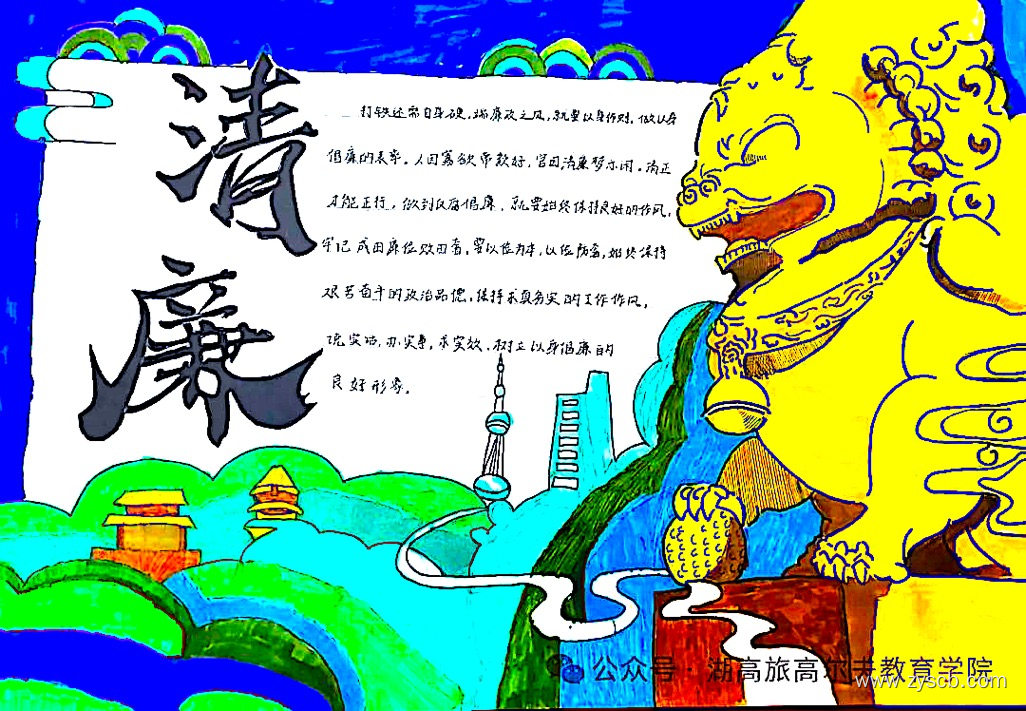 清廉
打铁还需自身硬，端廉政之风，就要以身作则，做以身
倡廉的表率。人因寡欲常教好，官因清廉梦亦闲。清正
才能正行，做到反腐倡廉，就要始终保持良好的作风，
牢记成由廉俭败由奢，要以俭为本，以俭防奢，始终保持
艰苦奋斗的政治品德，保持求真务实的工作作风，
说实话，办实事，求实效，树立以身倡廉的
良好形象。
公众号·湖高旅高尔夫教育学院
www.zyscb.com